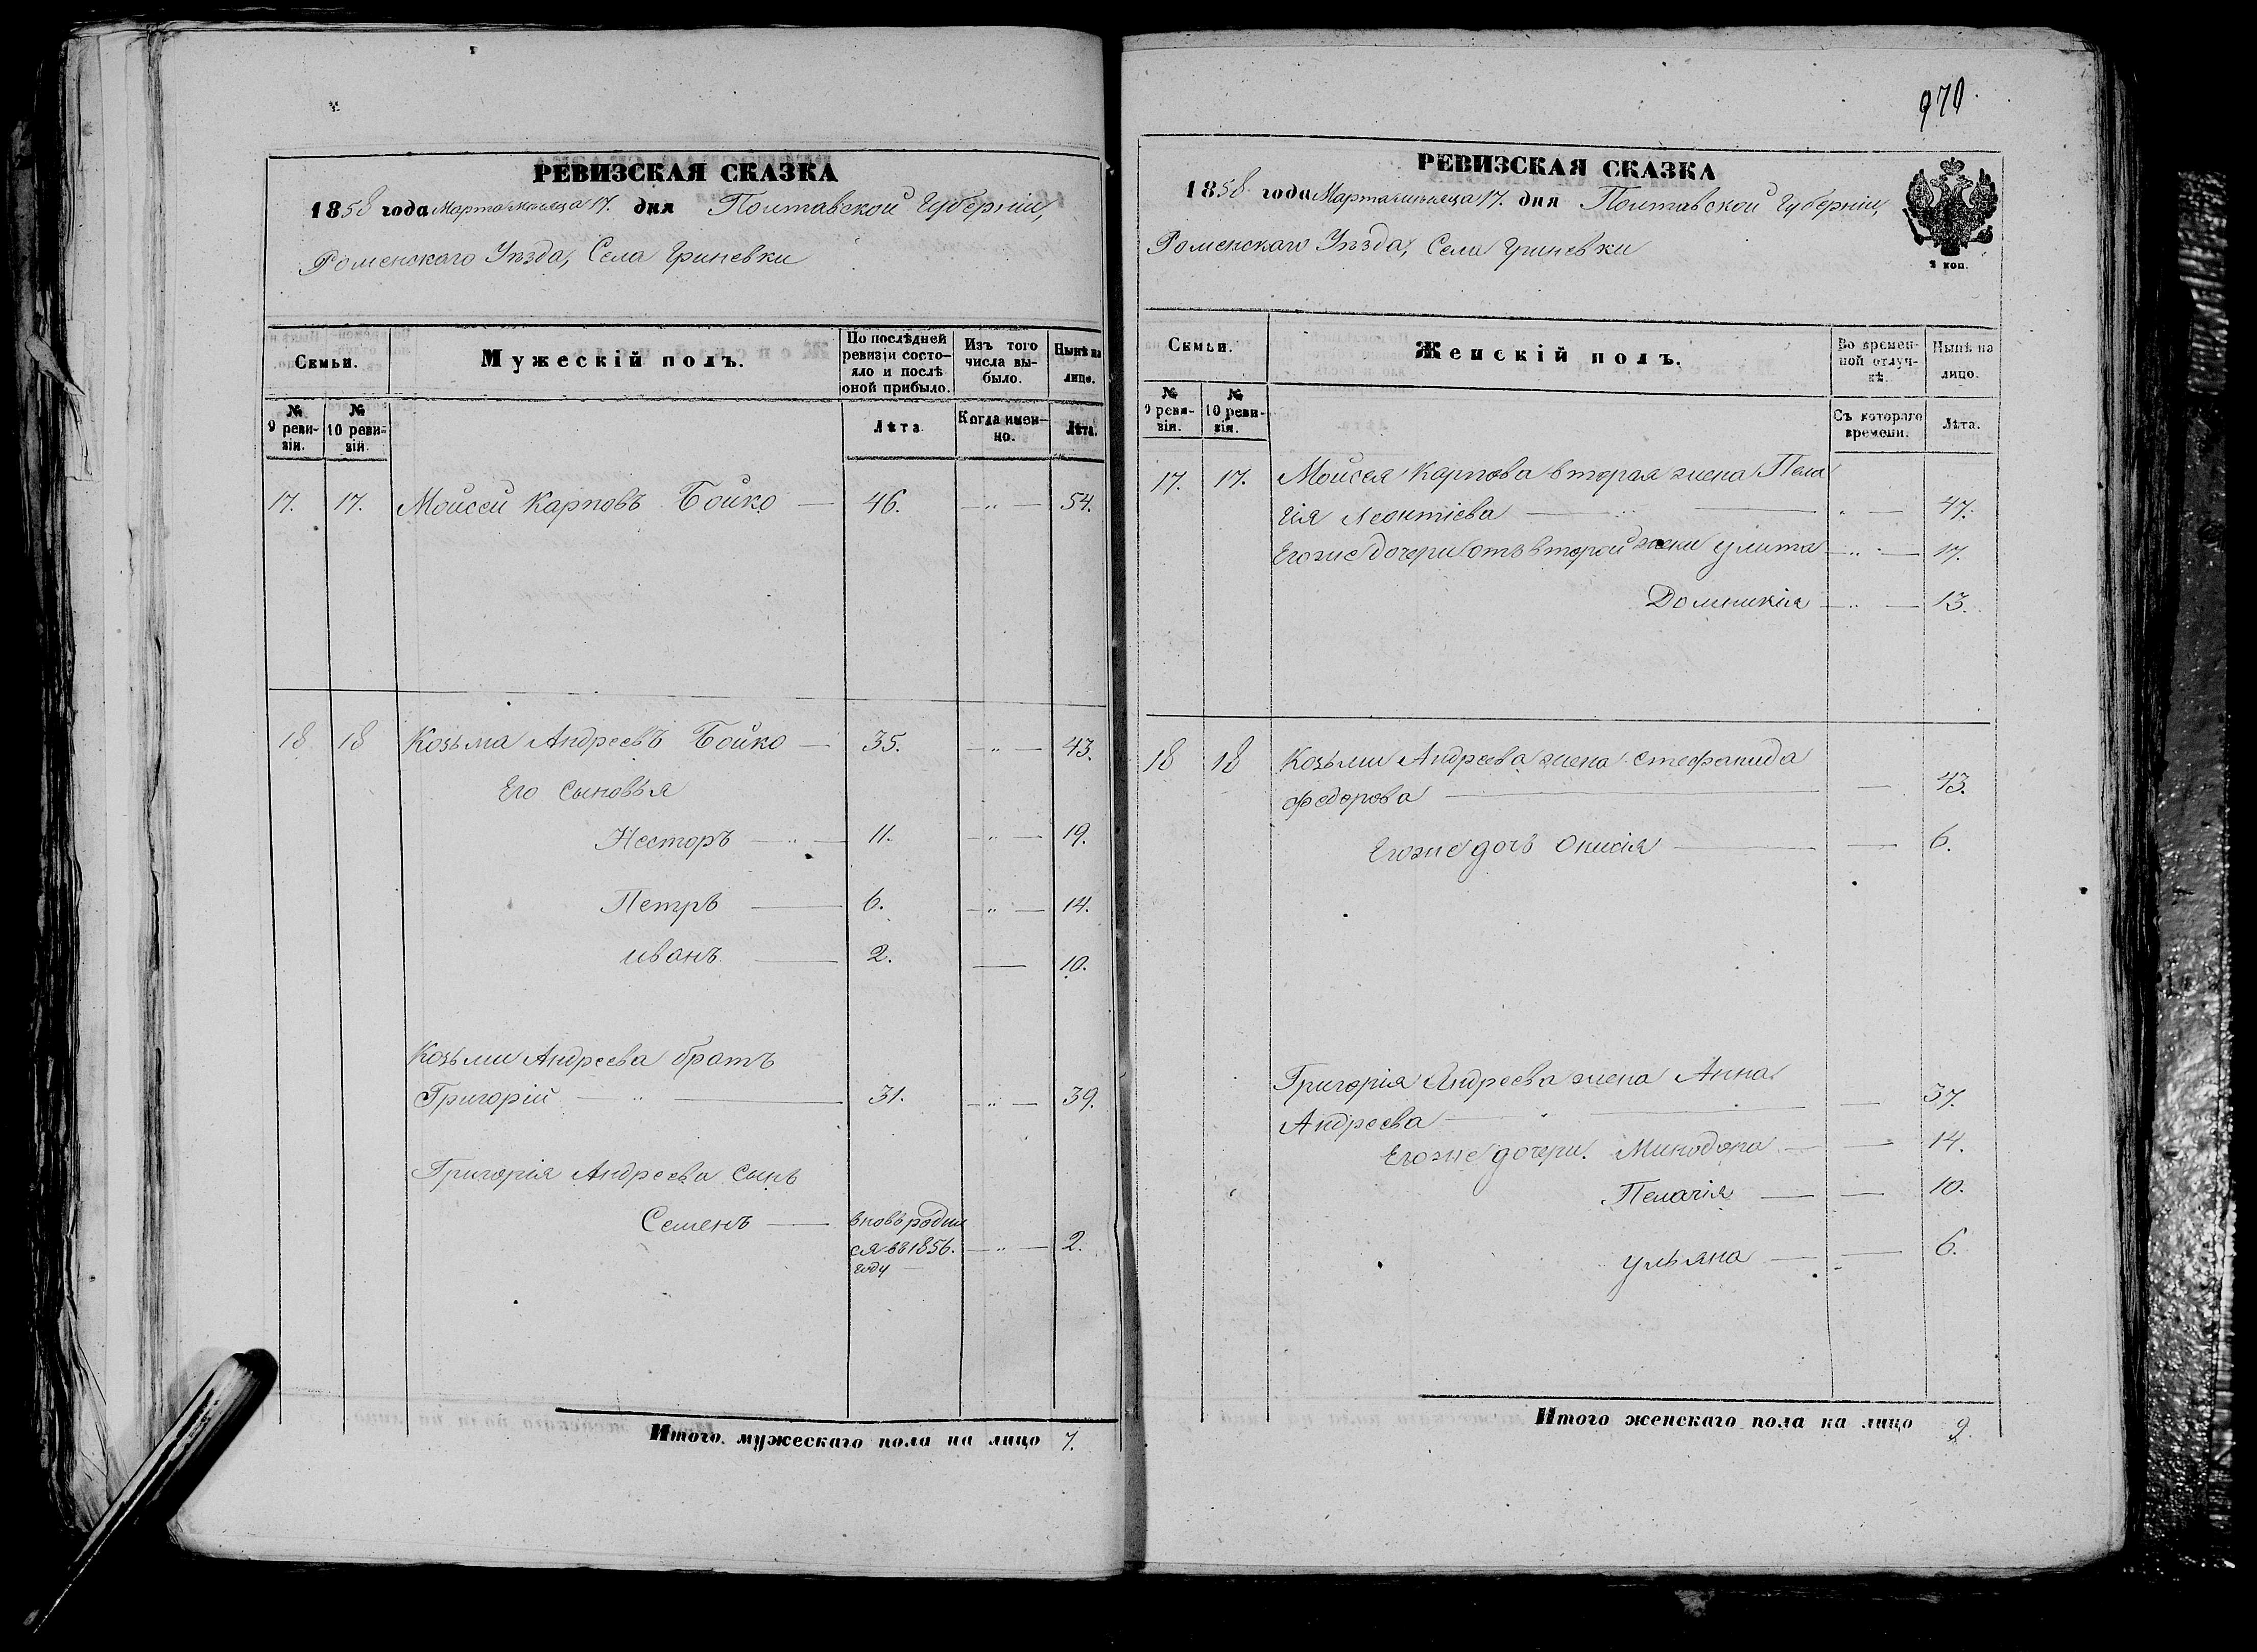 970.
РЕВИЗСКАЯ СКАЗКА
1858 года Марта мѣсяца 17. дня Полтавской Губерніи,
Роменскаго Уѣзда, Села Гриневки
Семьи.
Мужескій полъ.
По послѣдней ревизіи состояло и послѣ оной прибыло.
Изъ того числа выбыло.
Нынѣ на лицо.
№ 9 ревизіи.
№ 10 ревизіи.
Лѣта.
Когда именно.
Лѣта.
17. 17. Мойсей Карповъ Бойко — 46. — „ — 54.
18 18 Козьма Андреевъ Бойко — 35. — „ — 43.
Его сыновья
Несторъ — „ — 11. — „ — 19.
Петръ — 6. — „ — 14.
Иванъ — 2. — 10.
Козьмы Андреева братъ
Григорій — „ — 31. — „ — 39.
Григорія Андреева сынъ
Семенъ — вновь родил
ся въ 1856. — „ — 2.
году —
Итого мужескаго пола на лицо 7.
РЕВИЗСКАЯ СКАЗКА
1858 года Марта мѣсяца 17. дня Полтавской Губерніи,
Роменскаго Уѣзда, Села Гриневки
2 коп.
Семьи.
Женскій полъ.
Во временной отлучкѣ.
Нынѣ на лицо.
№ 9 ревизіи.
№ 10 ревизіи.
Съ котораго времени.
Лѣта.
17. 17. Мойсея Карпова вторая жена Пела
гія Леонтіева — „ — 47.
Егоже дочери отъ второй жены Улита — „ — 17.
Домникія — „ — 13.
18 18 Козьмы Андреева жена Стефанида
Федорова — — 43.
Егоже дочь Онисія — — 6.
Григорія Андреева жена Анна
Андреева — — 37.
Егоже дочери. Минодора — — 14.
Пелагія — — 10.
Ульяна — — 6.
Итого женскаго пола на лицо 9.